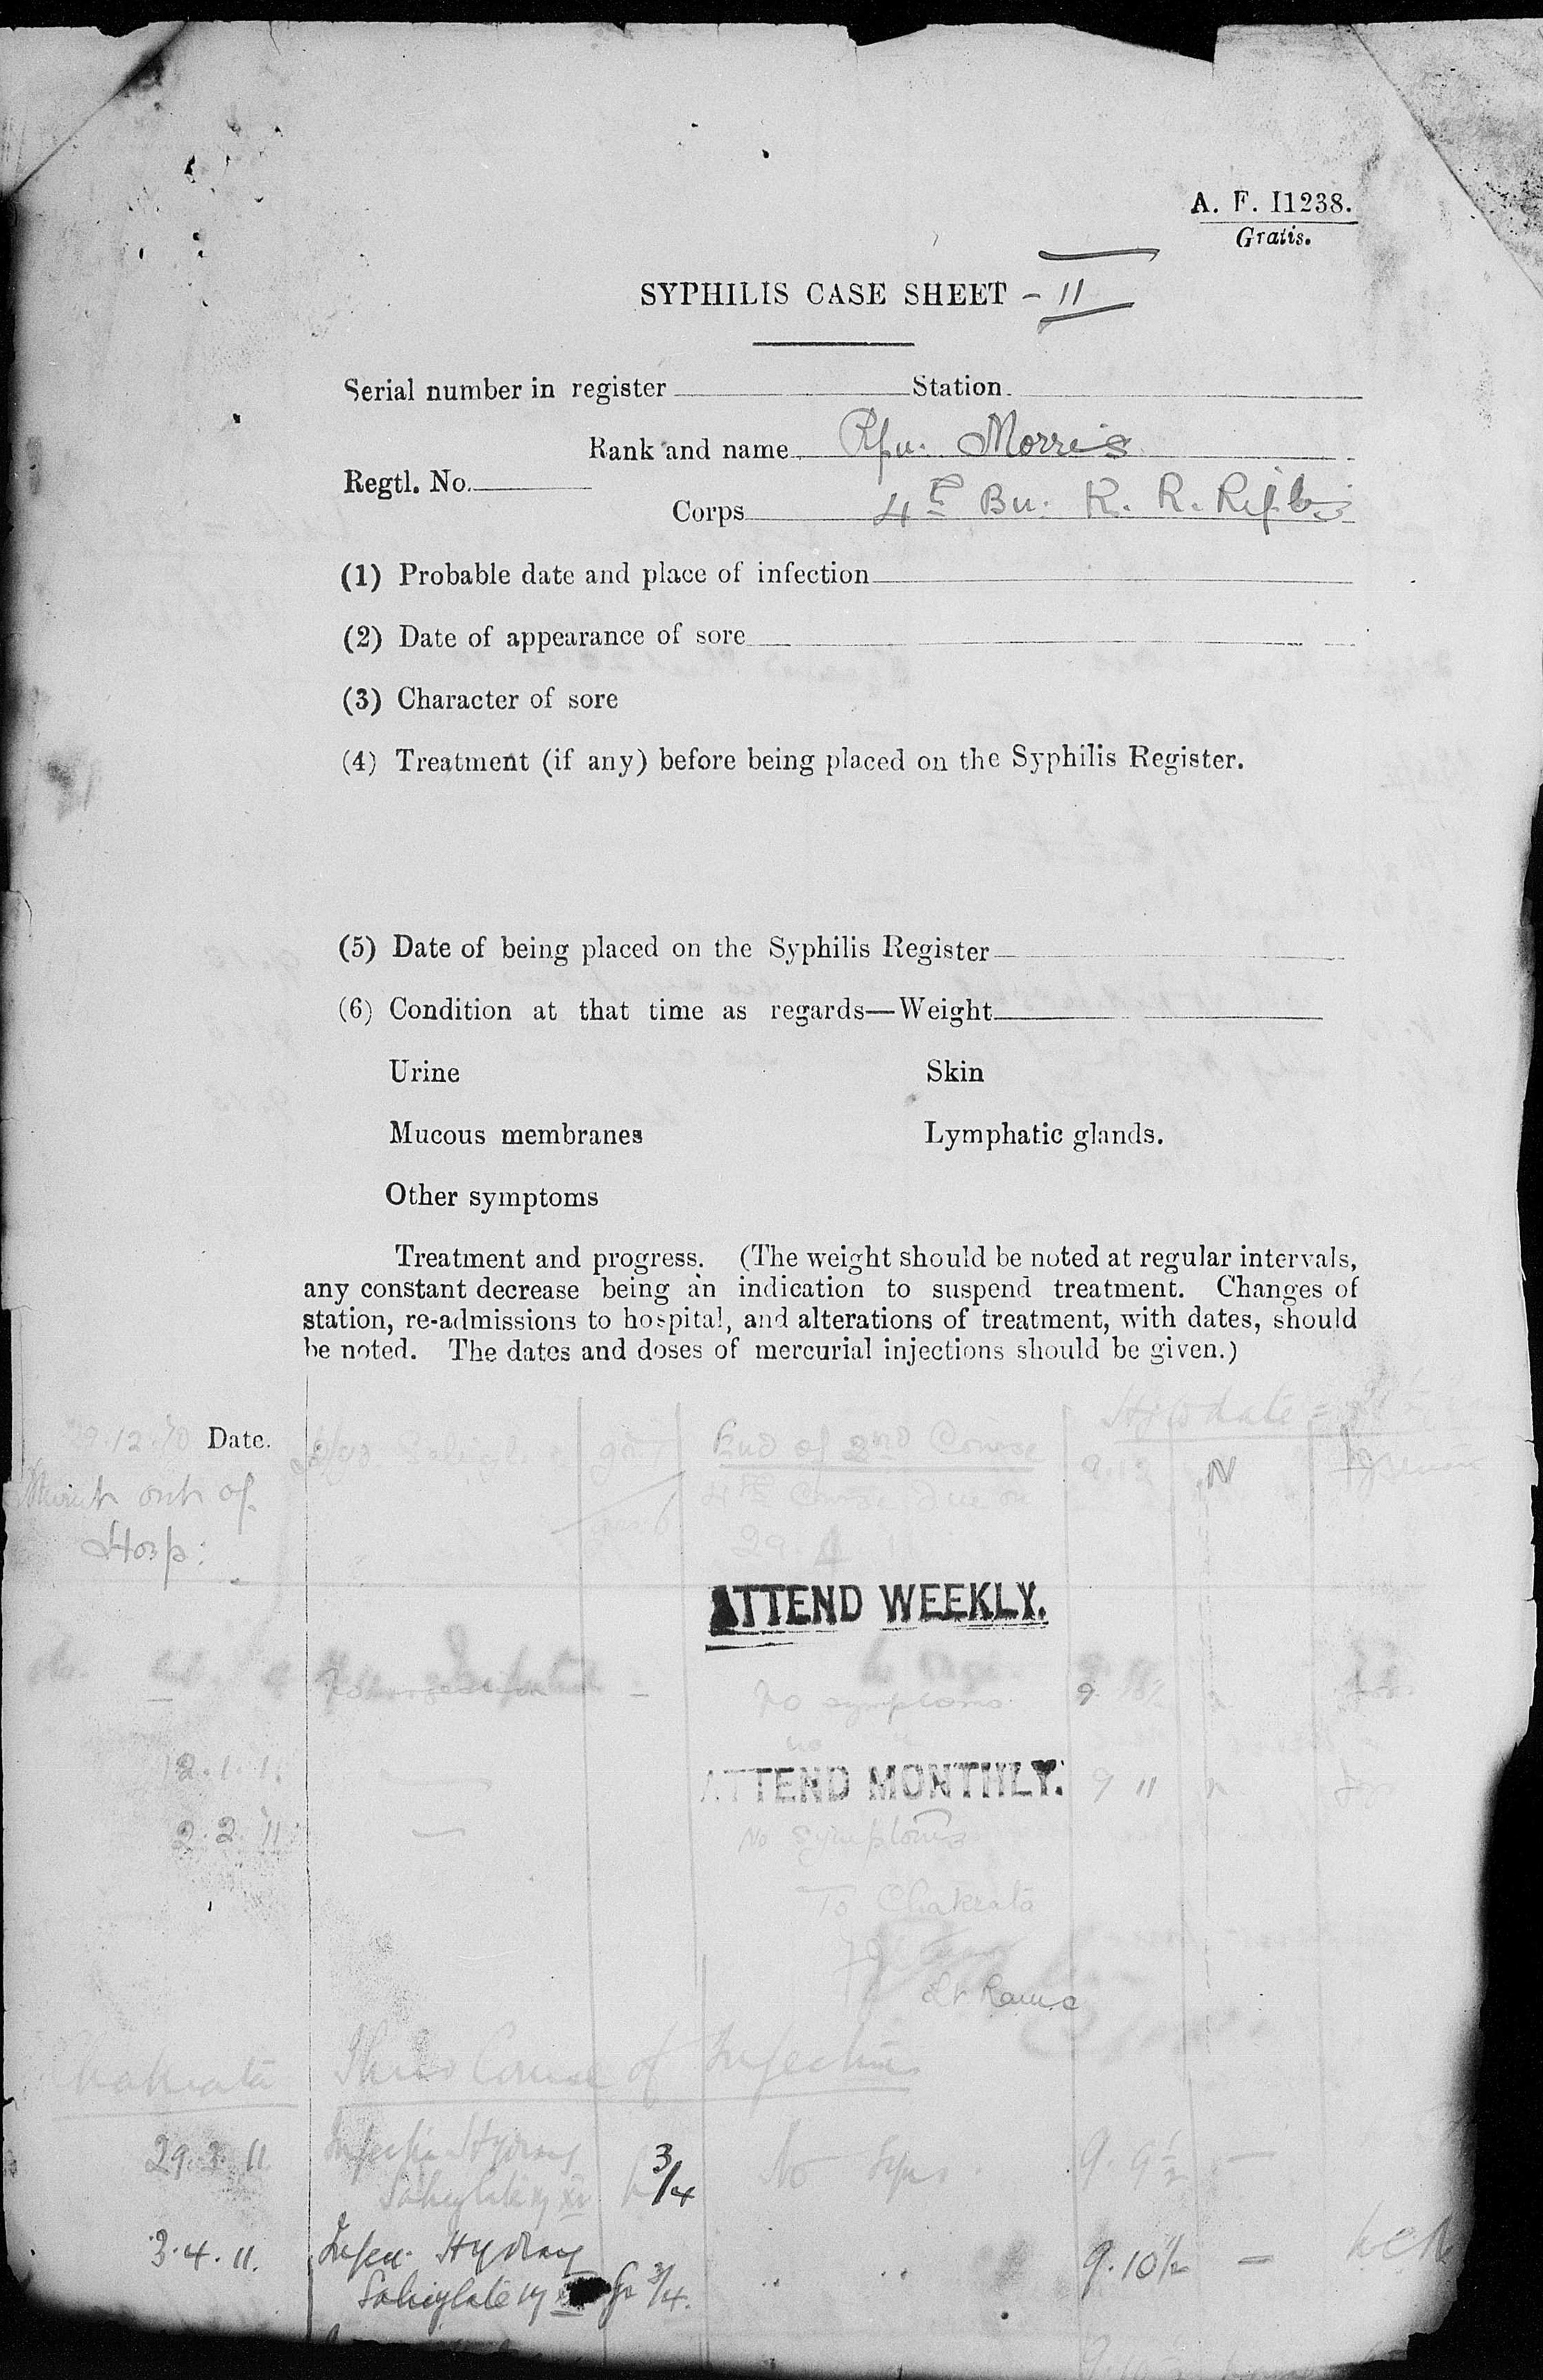 A. F. I1238.
Gratis.
SYPHILIS CASE SHEET - II
Serial number in register Station
Rank and name Rfn. Morris
Regtl. No.
Corps 4th Bn. K. R. Rifles
(1) Probable date and place of infection
(2) Date of appearance of sore
(3) Character of sore
(4) Treatment (if any) before being placed on the Syphilis Register.
(5) Date of being placed on the Syphilis Register
(6) Condition at that time as regards—Weight
Urine Skin
Mucous membranes Lymphatic glands.
Other symptoms
Treatment and progress. (The weight should be noted at regular intervals,
any constant decrease being an indication to suspend treatment. Changes of
station, re-admissions to hospital, and alterations of treatment, with dates, should
be noted. The dates and doses of mercurial injections should be given.)
Date.
End of 2nd Course
out of 4th Course due on
Hosp: 29. 4
ATTEND WEEKLY.
No symptoms 9
12.1.11
ATTEND MONTHLY. 9 11
2.2.11 — No Symptoms
To Chakrata
Chakrata Third Course of Injections
29.3.11. Injectn Hydrarg 3/4 No Sym. 9. 9½ —
Salicylate
3.4.11. Injecn. Hydrarg .. .. 9.10½ —
Salicylate gr 3/4.